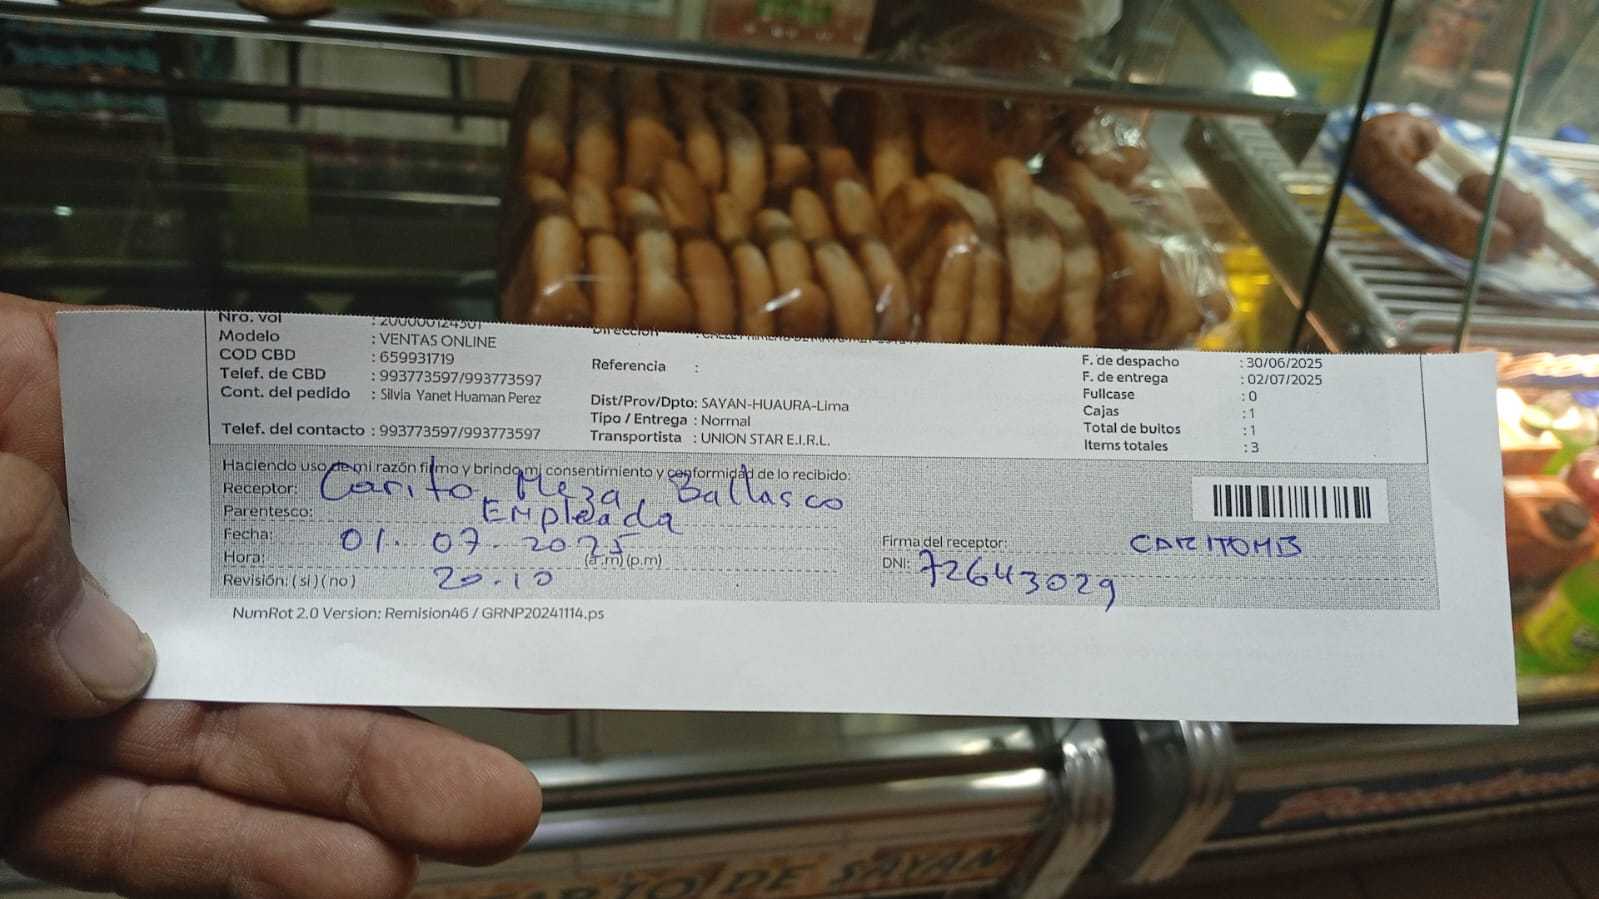 Nro. vol : 200000124301
Modelo : VENTAS ONLINE
COD CBD : 659931719
Telef. de CBD : 993773597/993773597
Cont. del pedido : Silvia Yanet Huaman Perez
Telef. del contacto : 993773597/993773597
Dirección :
Referencia :
Dist/Prov/Dpto: SAYAN-HUAURA-Lima
Tipo / Entrega : Normal
Transportista : UNION STAR E.I.R.L.
F. de despacho : 30/06/2025
F. de entrega : 02/07/2025
Fullcase : 0
Cajas : 1
Total de bultos : 1
Items totales : 3
Haciendo uso de mi razón firmo y brindo mi consentimiento y conformidad de lo recibido:
Receptor: Carito Meza Ballasco
Parentesco: Empleada
Fecha: 01.07.2025
Hora: (a.m) (p.m)
Revisión: ( si ) ( no ) 20.10
Firma del receptor: CARITOMB
DNI: 72643029
NumRot 2.0 Version: Remision46 / GRNP20241114.ps
DE SAYAN